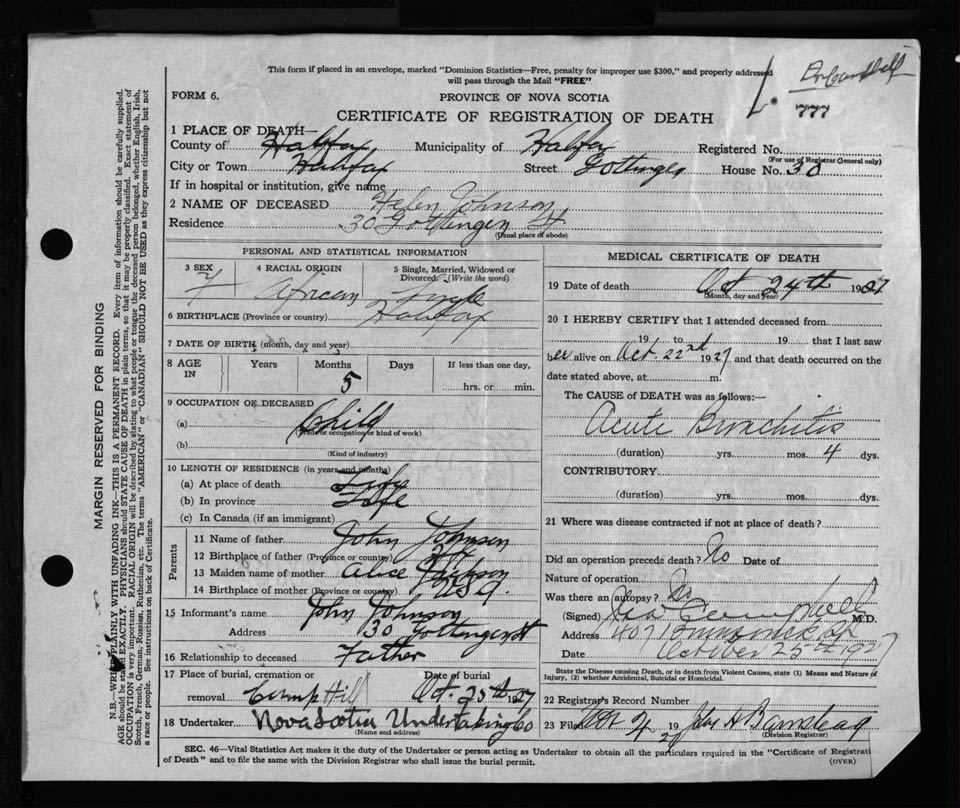 This form if placed in an envelope, marked "Dominion Statistics—Free, penalty for improper use $300," and properly addressed
will pass through the Mail "FREE"
777
FORM 6.
PROVINCE OF NOVA SCOTIA
CERTIFICATE OF REGISTRATION OF DEATH
1 PLACE OF DEATH—
County of Halifax Municipality of Halifax Registered No.
(For use of Registrar General only)
City or Town Halifax Street Gottingen House No. 30
If in hospital or institution, give name
2 NAME OF DECEASED Helen Johnson
Residence 30 Gottingen St
(Usual place of abode)
PERSONAL AND STATISTICAL INFORMATION
3 SEX 4 RACIAL ORIGIN 5 Single, Married, Widowed or Divorced (Write the word)
African Single
6 BIRTHPLACE (Province or country) Halifax
7 DATE OF BIRTH (month, day and year)
8 AGE IN Years Months Days If less than one day,
5 hrs. or min.
9 OCCUPATION OF DECEASED
(a) Child
(Trade or occupation or kind of work)
(b)
(Kind of industry)
10 LENGTH OF RESIDENCE (in years and months)
(a) At place of death Life
(b) In province Life
(c) In Canada (if an immigrant)
Parents
11 Name of father John Johnson
12 Birthplace of father (Province or country)
13 Maiden name of mother Alice Jackson
14 Birthplace of mother (Province or country)
15 Informant's name John Johnson
Address 30 Gottingen St
16 Relationship to deceased Father
17 Place of burial, cremation or removal Camp Hill Date of burial Oct. 25th 27
18 Undertaker Nova Scotia Undertaking Co
(Name and address)
MEDICAL CERTIFICATE OF DEATH
19 Date of death Oct 24th 1927
(Month, day and year)
20 I HEREBY CERTIFY that I attended deceased from
19 to 19 that I last saw
her alive on Oct. 22nd 1927 and that death occurred on the
date stated above, at m.
The CAUSE of DEATH was as follows:—
Acute Bronchitis
(duration) yrs. mos. 4 dys.
CONTRIBUTORY
(duration) yrs. mos. dys.
21 Where was disease contracted if not at place of death?
Did an operation precede death? No Date of
Nature of operation
Was there an autopsy? No
(Signed) Campbell M.D.
Address 407 Brunswick St
Date October 25th 1927
State the Disease causing Death, or in death from Violent Causes, state (1) Means and Nature of
Injury, (2) whether Accidental, Suicidal or Homicidal.
22 Registrar's Record Number
23 Filed 19 H Barnstead
(Division Registrar)
SEC. 46—Vital Statistics Act makes it the duty of the Undertaker or person acting as Undertaker to obtain all the particulars required in the "Certificate of Registration
of Death" and to file the same with the Division Registrar who shall issue the burial permit.
(OVER)
MARGIN RESERVED FOR BINDING
N.B.—WRITE PLAINLY WITH UNFADING INK—THIS IS A PERMANENT RECORD. Every item of information should be carefully supplied.
AGE should be stated EXACTLY. PHYSICIANS should STATE CAUSE OF DEATH in plain terms, so that it may be properly classified. Exact statement of
OCCUPATION is very important. RACIAL ORIGIN will be described by stating to what people or tongue the deceased person belonged, whether English, Irish,
Scotch, French, German, Russian, Ruthenian, etc. The terms "AMERICAN" or "CANADIAN" SHOULD NOT BE USED as they express citizenship but not
a race or people. See instructions on back of Certificate.